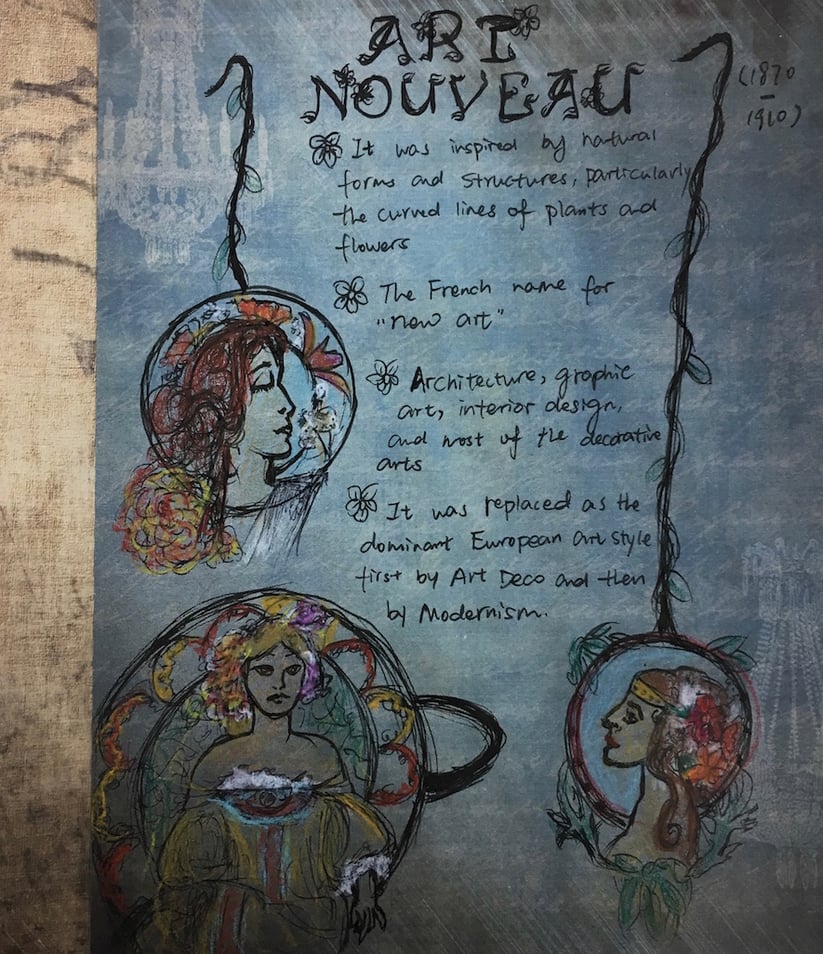 ART
NOUVEAU
(1870
–
1910)
It was inspired by natural
forms and structures, particularly
the curved lines of plants and
flowers
The French name for
"new art"
Architecture, graphic
art, interior design,
and most of the decorative
arts
It was replaced as the
dominant European art style
first by Art Deco and then
by Modernism.